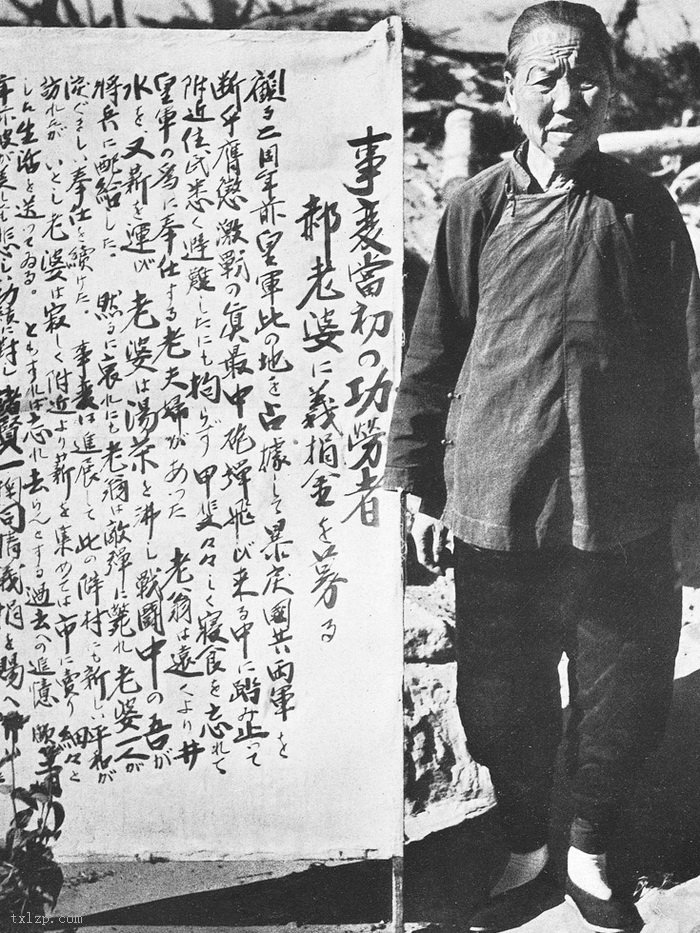 事変當初の功勞者
郝老婆に義捐金を募る
顧る二周年前皇軍此の地を占據して暴戻國共両軍を
断乎膺懲激戰の眞最中砲弾飛び来る中に踏み止って
附近住民悉く避難したにも拘らず甲斐々々しく寝食を忘れて
皇軍の為に奉仕する老夫婦があった 老翁は遠くより井
水を、又薪を運び 老婆は湯茶を沸し戦闘中の吾が
將兵に配給した。 然るに哀れにも老翁は敵弾に斃れ老婆一人が
涙ぐましい奉仕を續けた。 事変は進展して此の僻村にも新しい平和が
訪れたが いとし老婆は寂しく附近より薪を集めては市に賣り細々と
生活を送ってゐる。 ともすれば忘れ去らんとする過去への追憶
彼が美しくも悲しい功績に対し 諸賢一掬同情義捐を賜へ
txlzp.com